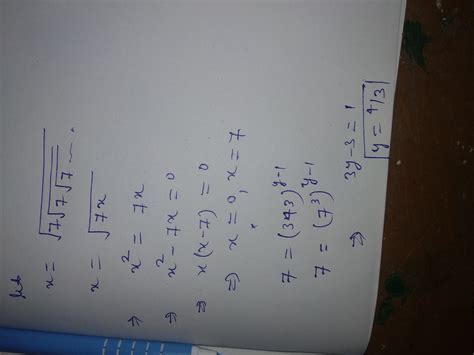 let
x = √7√7√7....
x = √7x
⇒ x² = 7x
⇒ x² - 7x = 0
⇒ x(x-7) = 0
⇒ x = 0, x = 7
7 = (343)^y-1
7 = (7³)^y-1
⇒ 3y-3 = 1
y = 4/3